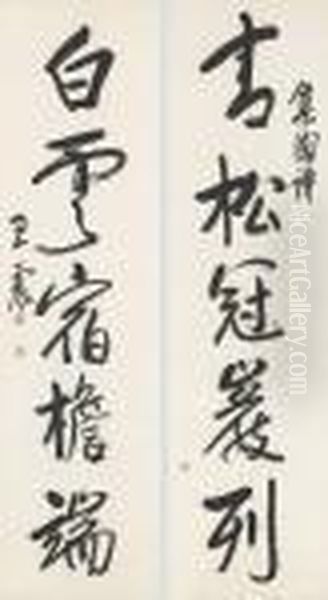 青松冠巖列
集陶詩
白雲宿檐端
王震
NiceArtGallery.com